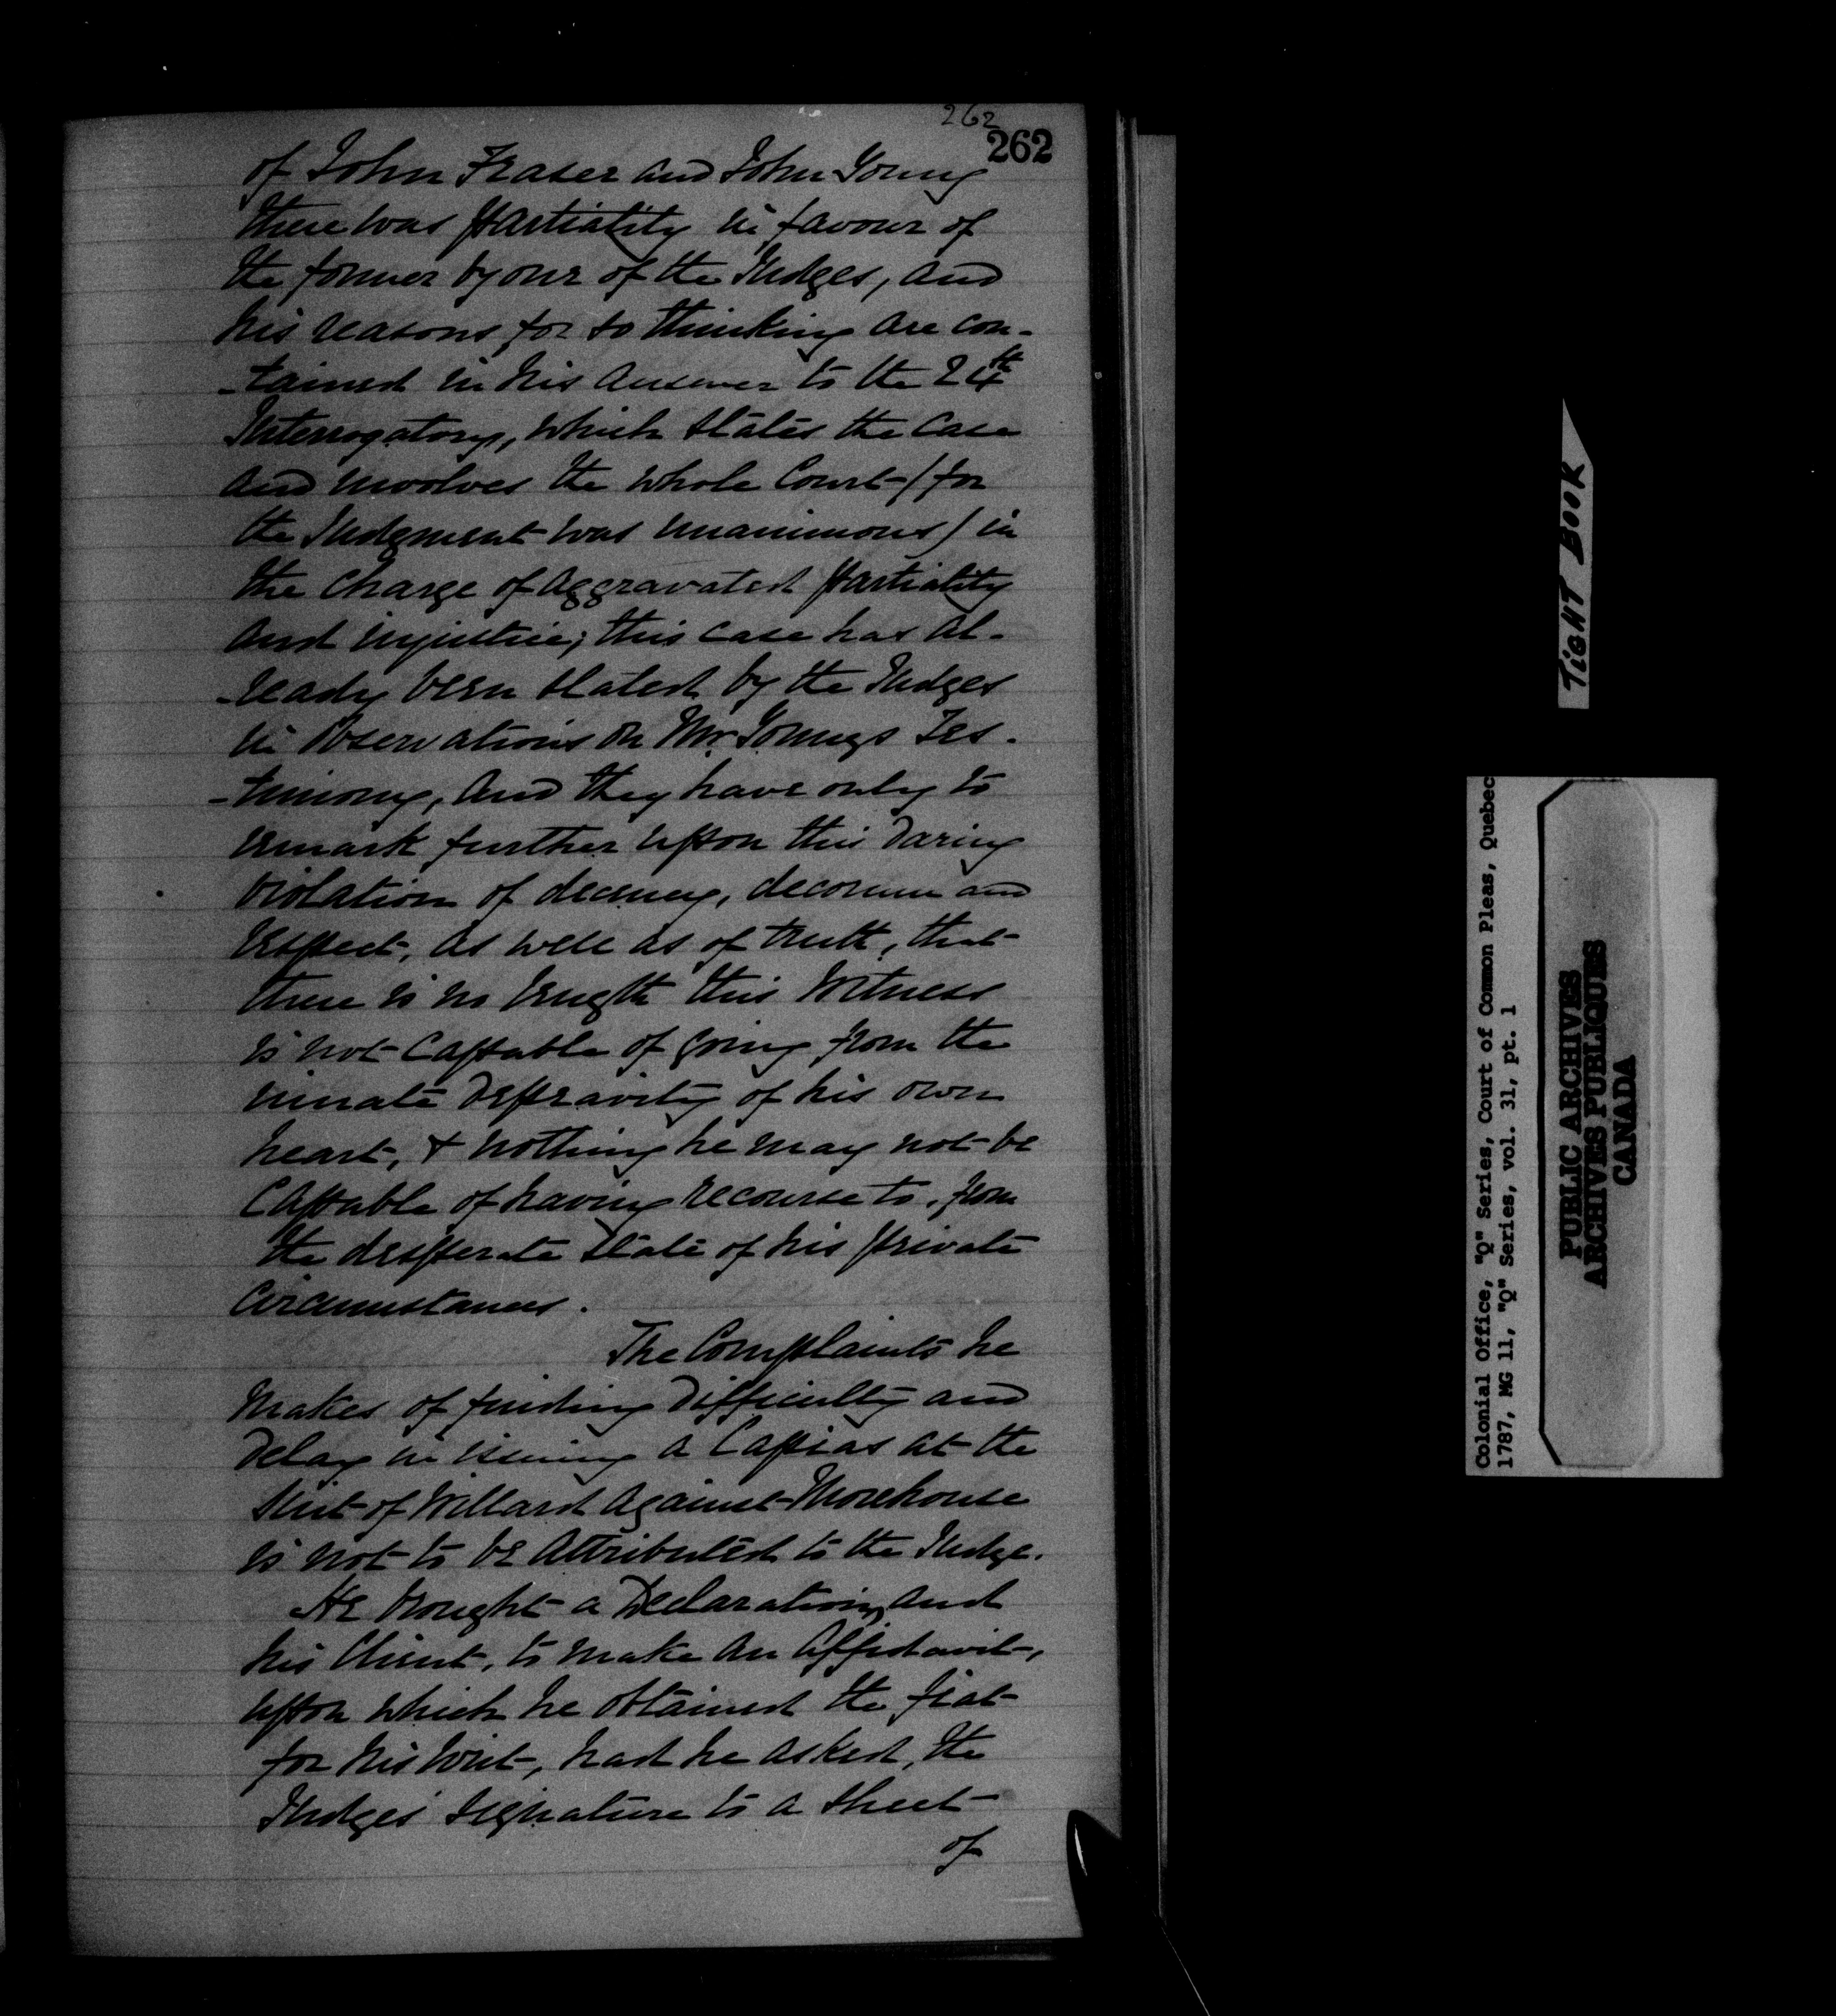 262
262
of John Fraser and John Young
there was partiality in favour of
the former by one of the Judges, and
his reasons for so thinking are con-
-tained in his answer to the 24th
Interrogatory, which states the Case
and involves the whole Court (for
the Judgment was unanimous) in
the charge of aggravated partiality
and injustice; this case has al-
-ready been stated by the Judges
in Observations on Mr. Youngs Tes-
-timony, and they have only to
remark further upon this daring
violation of decency, decorum and
respect, as well as of truth, that
there is no length this Witness
is not capable of going from the
innate depravity of his own
heart, & nothing he may not be
capable of having recourse to, from
the desperate state of his private
circumstances.
The Complaints he
makes of finding difficulty and
delay in issuing a Capias at the
suit of Willard against Morehouse
is not to be attributed to the Judge.
He brought a Declaration, and
his Client, to make an affidavit,
upon which he obtained the fiat
for his writ, had he asked, the
Judges' signature to a sheet
of
TIGHT BOOK
Colonial Office, "Q" Series, Court of Common Pleas, Quebec
1787, MG 11, "Q" Series, vol. 31, pt. 1
PUBLIC ARCHIVES
ARCHIVES PUBLIQUES
CANADA